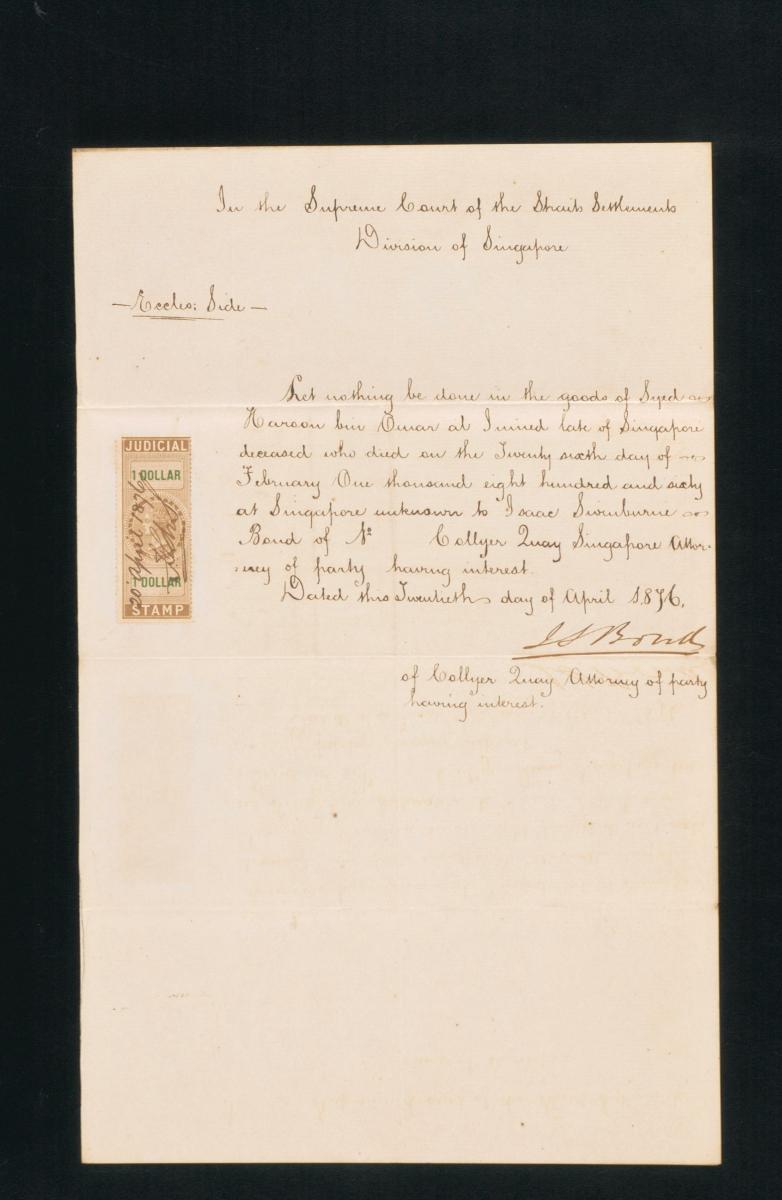 In the Supreme Court of the Straits Settlements
Division of Singapore
— Eccles: Side —
Let nothing be done in the goods of Syed
Haroon bin Omar al Junied late of Singapore
deceased who died on the Twenty sixth day of
February One thousand eight hundred and sixty
at Singapore unknown to Isaac Swinburne
Bond of No Collyer Quay Singapore Attor-
-ney of party having interest.
Dated this Twentieth day of April 1876.
I S Bond
of Collyer Quay Attorney of party
having interest.
JUDICIAL
1 DOLLAR
20 April 1876
1 DOLLAR
STAMP